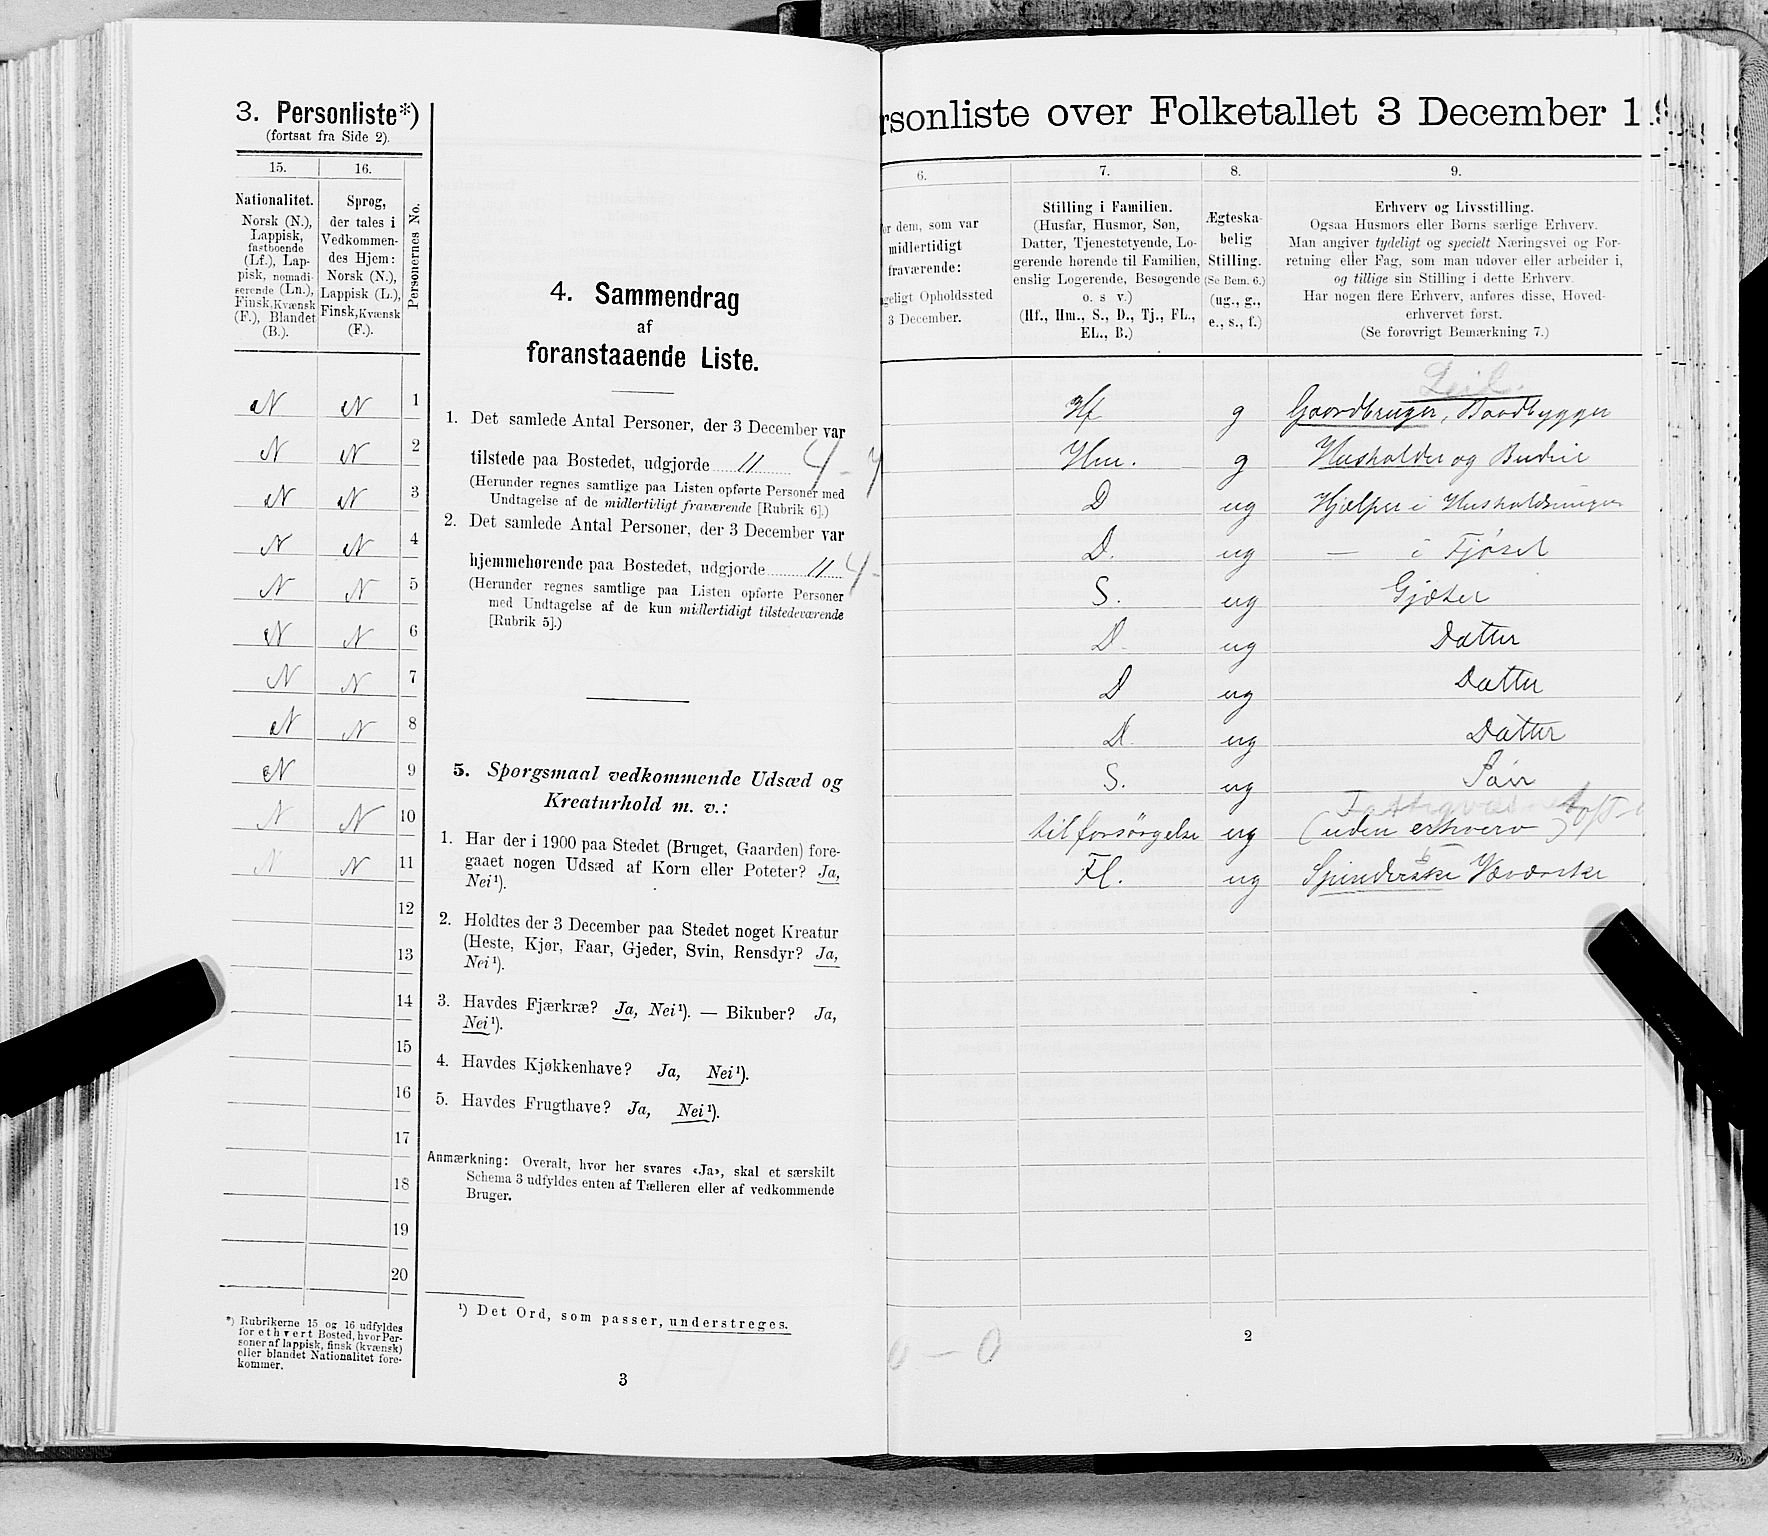 3. Personliste*)
(fortsat fra Side 2).
15.
Nationalitet.
Norsk (N.),
Lappisk,
fastboende
(Lf.), Lap-
pisk, nomadi-
serende (Ln.),
Finsk, Kvænsk
(F.), Blandet
(B.).
16.
Sprog,
der tales i
Vedkommen-
des Hjem:
Norsk (N.),
Lappisk (L.),
Finsk, Kvænsk
(F.).
Personernes No.
N N 1
N N 2
N N 3
N N 4
N N 5
N N 6
N N 7
N N 8
N 9
N N 10
N N 11
12
13
14
15
16
17
18
19
20
*) Rubrikerne 15 og 16 udfyldes
for ethvert Bosted, hvor Per-
soner af lappisk, finsk (kvænsk)
eller blandet Nationalitet fore-
kommer.
4. Sammendrag
af
foranstaaende Liste.
1. Det samlede Antal Personer, der 3 December var
tilstede paa Bostedet, udgjorde 11 4 - 7
(Herunder regnes samtlige paa Listen opførte Personer med
Undtagelse af de midlertidigt fraværende [Rubrik 6].)
2. Det samlede Antal Personer, der 3 December var
hjemmehørende paa Bostedet, udgjorde 11 4 -
(Herunder regnes samtlige paa Listen opførte Personer
med Undtagelse af de kun midlertidigt tilstedeværende
[Rubrik 5].)
5. Sporgsmaal vedkommende Udsæd og
Kreaturhold m. v.:
1. Har der i 1900 paa Stedet (Bruget, Gaarden) fore-
gaaet nogen Udsæd af Korn eller Poteter? Ja,
Nei¹).
2. Holdtes der 3 December paa Stedet noget Kreatur
(Heste, Kjør, Faar, Gjeder, Svin, Rensdyr? Ja,
Nei¹).
3. Havdes Fjærkræ? Ja, Nei¹). — Bikuber? Ja,
Nei¹).
4. Havdes Kjøkkenhave? Ja, Nei¹).
5. Havdes Frugthave? Ja, Nei¹).
Anmærkning: Overalt, hvor her svares «Ja», skal et særskilt
Schema 3 udfyldes enten af Tælleren eller af vedkommende
Bruger.
¹) Det Ord, som passer, understreges.
3
rsonliste over Folketallet 3 December 19
6.
or dem, som var
midlertidigt
fraværende:
geligt Opholdssted
3 December.
7.
Stilling i Familien.
(Husfar, Husmor, Søn,
Datter, Tjenestetyende, Lo-
gerende hørende til Familien,
enslig Logerende, Besøgende
o. s v.)
(Hf., Hm., S., D., Tj., FL.,
EL., B.)
8.
Ægteska-
belig
Stilling.
(Se Bem. 6.)
(ug., g.,
e., s., f.)
9.
Erhverv og Livsstilling.
Ogsaa Husmors eller Børns særlige Erhverv.
Man angiver tydeligt og specielt Næringsvei og For-
retning eller Fag, som man udøver eller arbeider i,
og tillige sin Stilling i dette Erhverv.
Har nogen flere Erhverv, anføres disse, Hoved-
erhvervet først.
(Se forøvrigt Bemærkning 7.)
Leil.
Hf g Gaardbruger, Baadbygger
Hm. g Husholder og Budeie
D ug Hjælper i Husholdningen
D. ug — i Fjøset
S. ug Gjæter
D. ug Datter
D ug Datter
D. ug Datter
S. ug Søn
Fattigvæsen
til forsørgelse ug (uden erhverv)
Fl. ug Spinderske Væverske
0 — 0
2